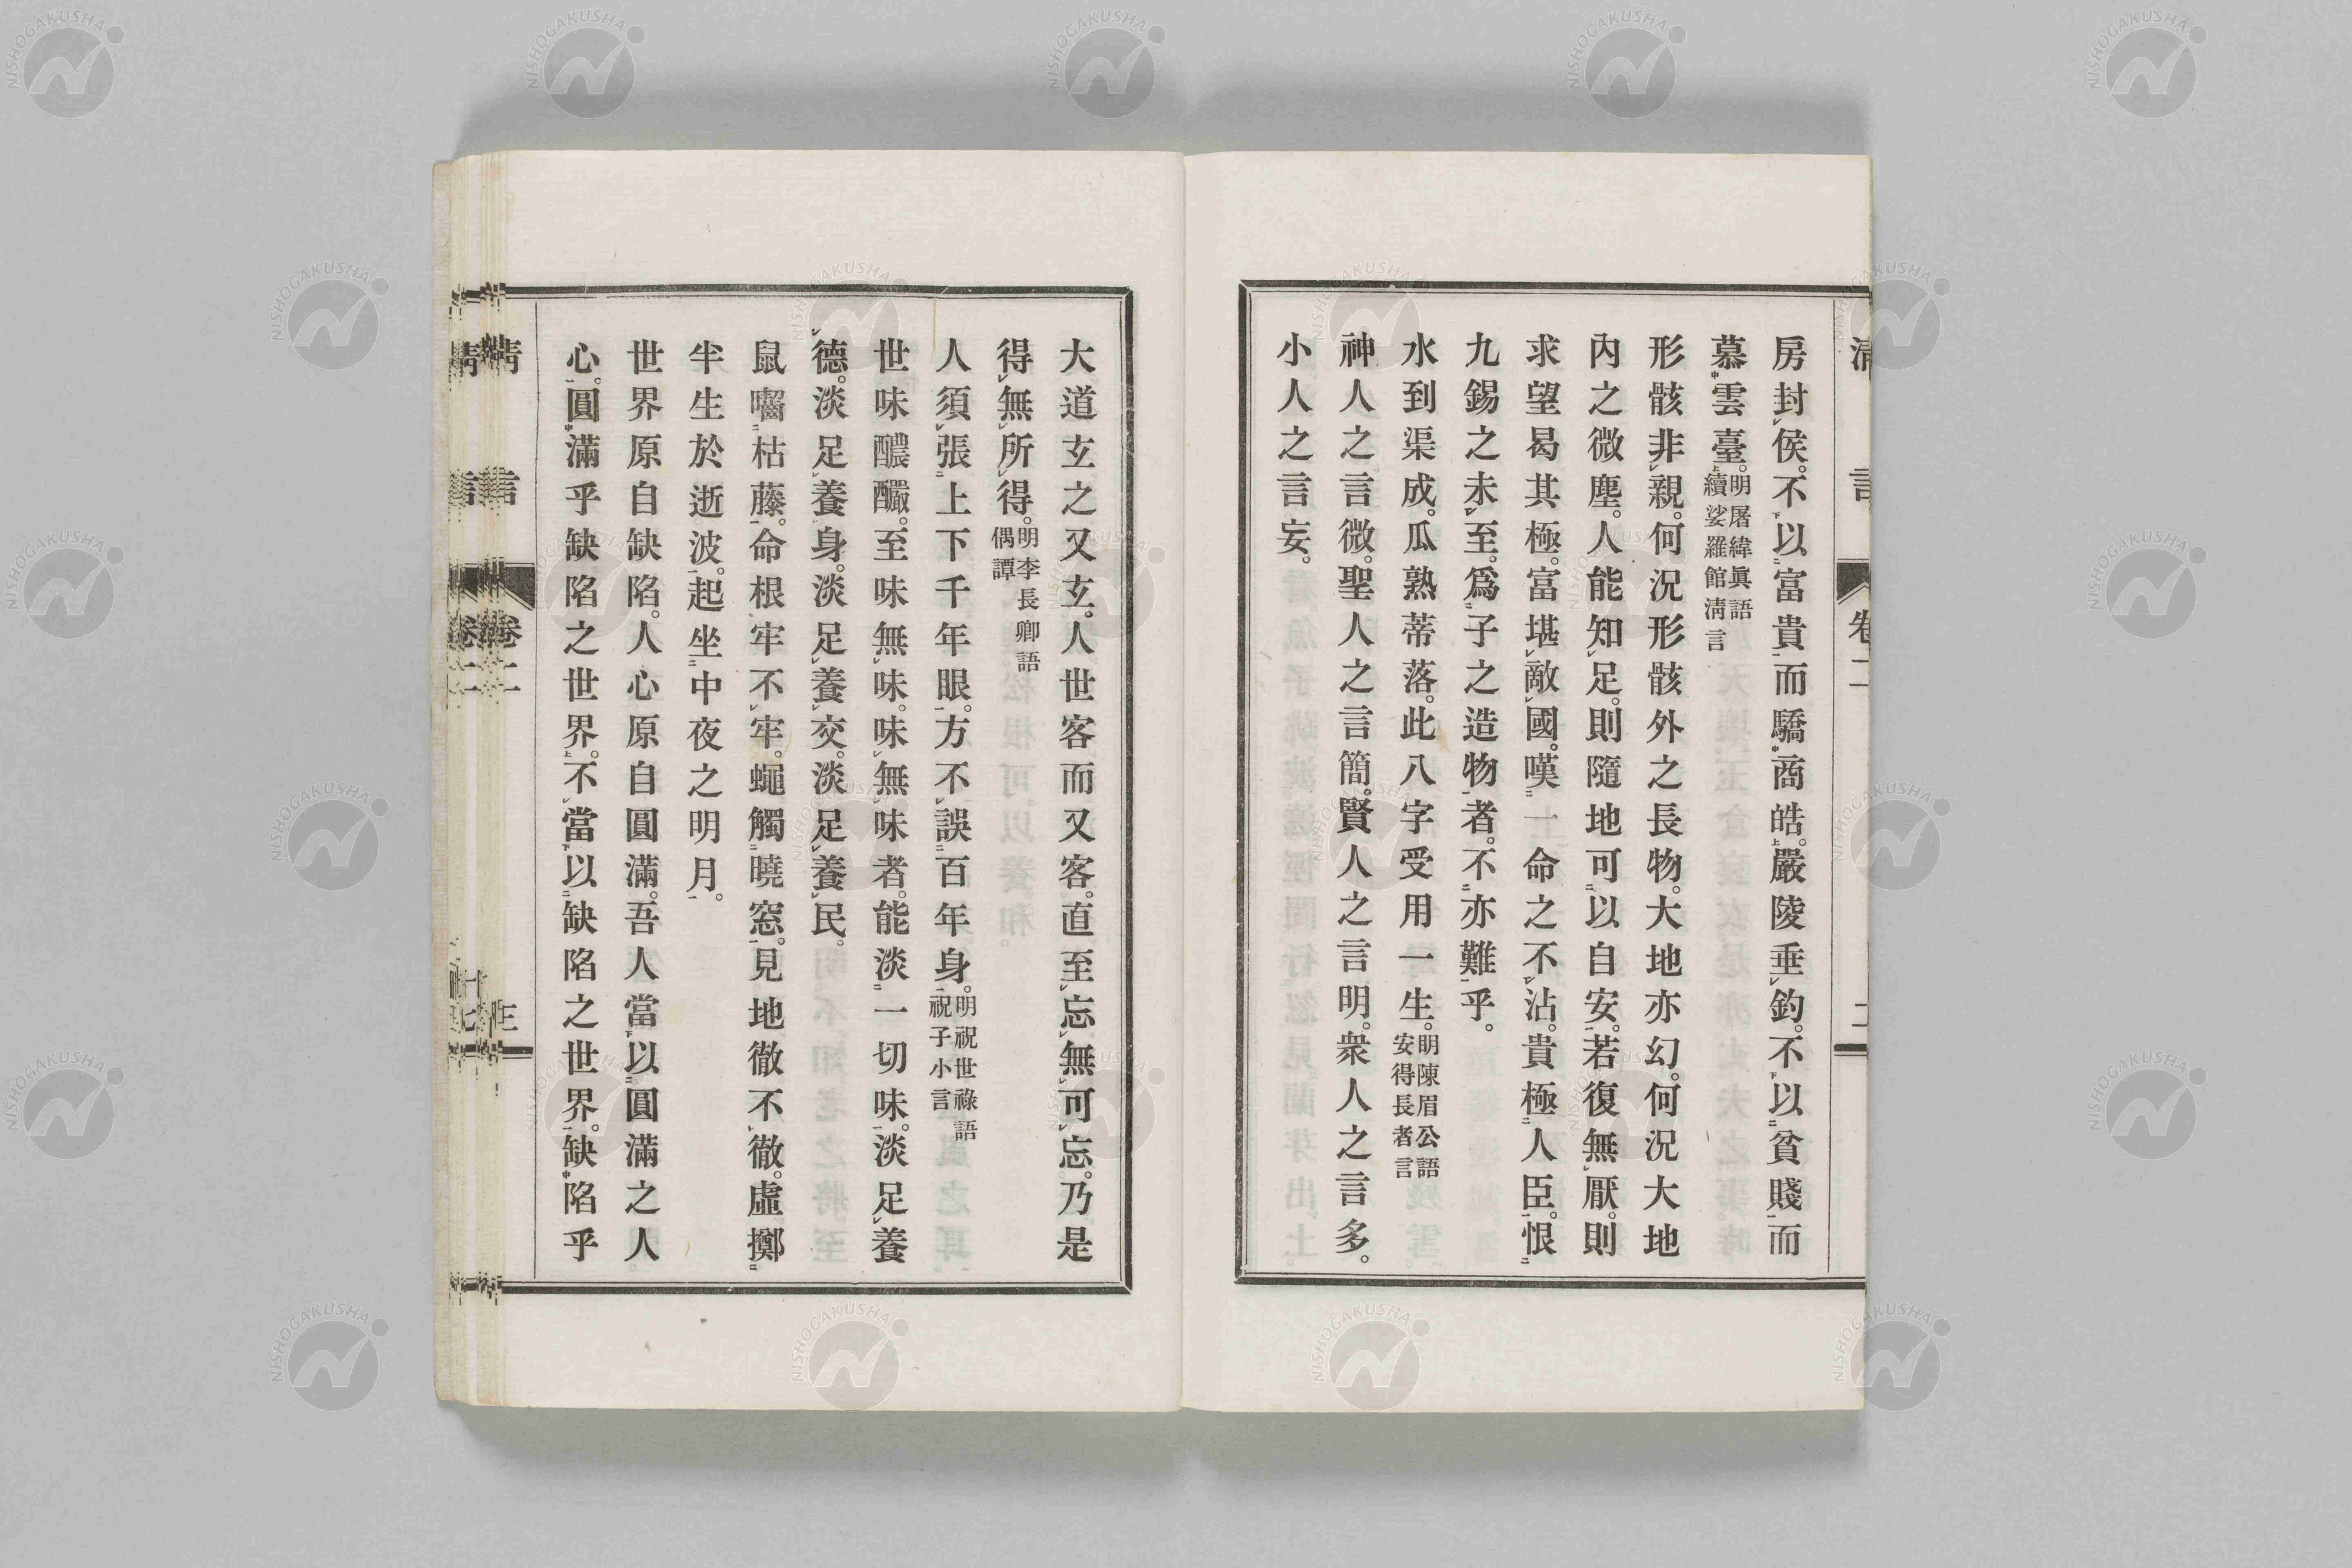 房封侯。不以富貴而驕商皓。嚴陵垂釣。不以貧賤而
慕雲臺。明屠緯眞語續娑羅館淸言
形骸非親。何況形骸外之長物。大地亦幻。何況大地
內之微塵。人能知足。則隨地可以自安。若復無厭。則
求望曷其極。富堪敵國。嘆一命之不沾。貴極人臣。恨
九錫之未至。爲子之造物者。不亦難乎。
水到渠成。瓜熟蒂落。此八字受用一生。明陳眉公語安得長者言
神人之言微。聖人之言簡。賢人之言明。衆人之言多。
小人之言妄。
大道玄之又玄。人世客而又客。直至忘無可忘。乃是
得無所得。明李長卿語偶譚
人須張上下千年眼。方不誤百年身。明祝世祿語祝子小言
世味醲釅。至味無味。味無味者。能淡一切味。淡足養
德。淡足養身。淡足養交。淡足養民。
鼠囓枯藤。命根牢不牢。蠅觸曉窓。見地徹不徹。虛擲
半生於逝波。起坐中夜之明月。
世界原自缺陷。人心原自圓滿。吾人當以圓滿之人
心。圓滿乎缺陷之世界。不當以缺陷之世界。缺陷乎
淸言
卷二
NISHOGAKUSHA